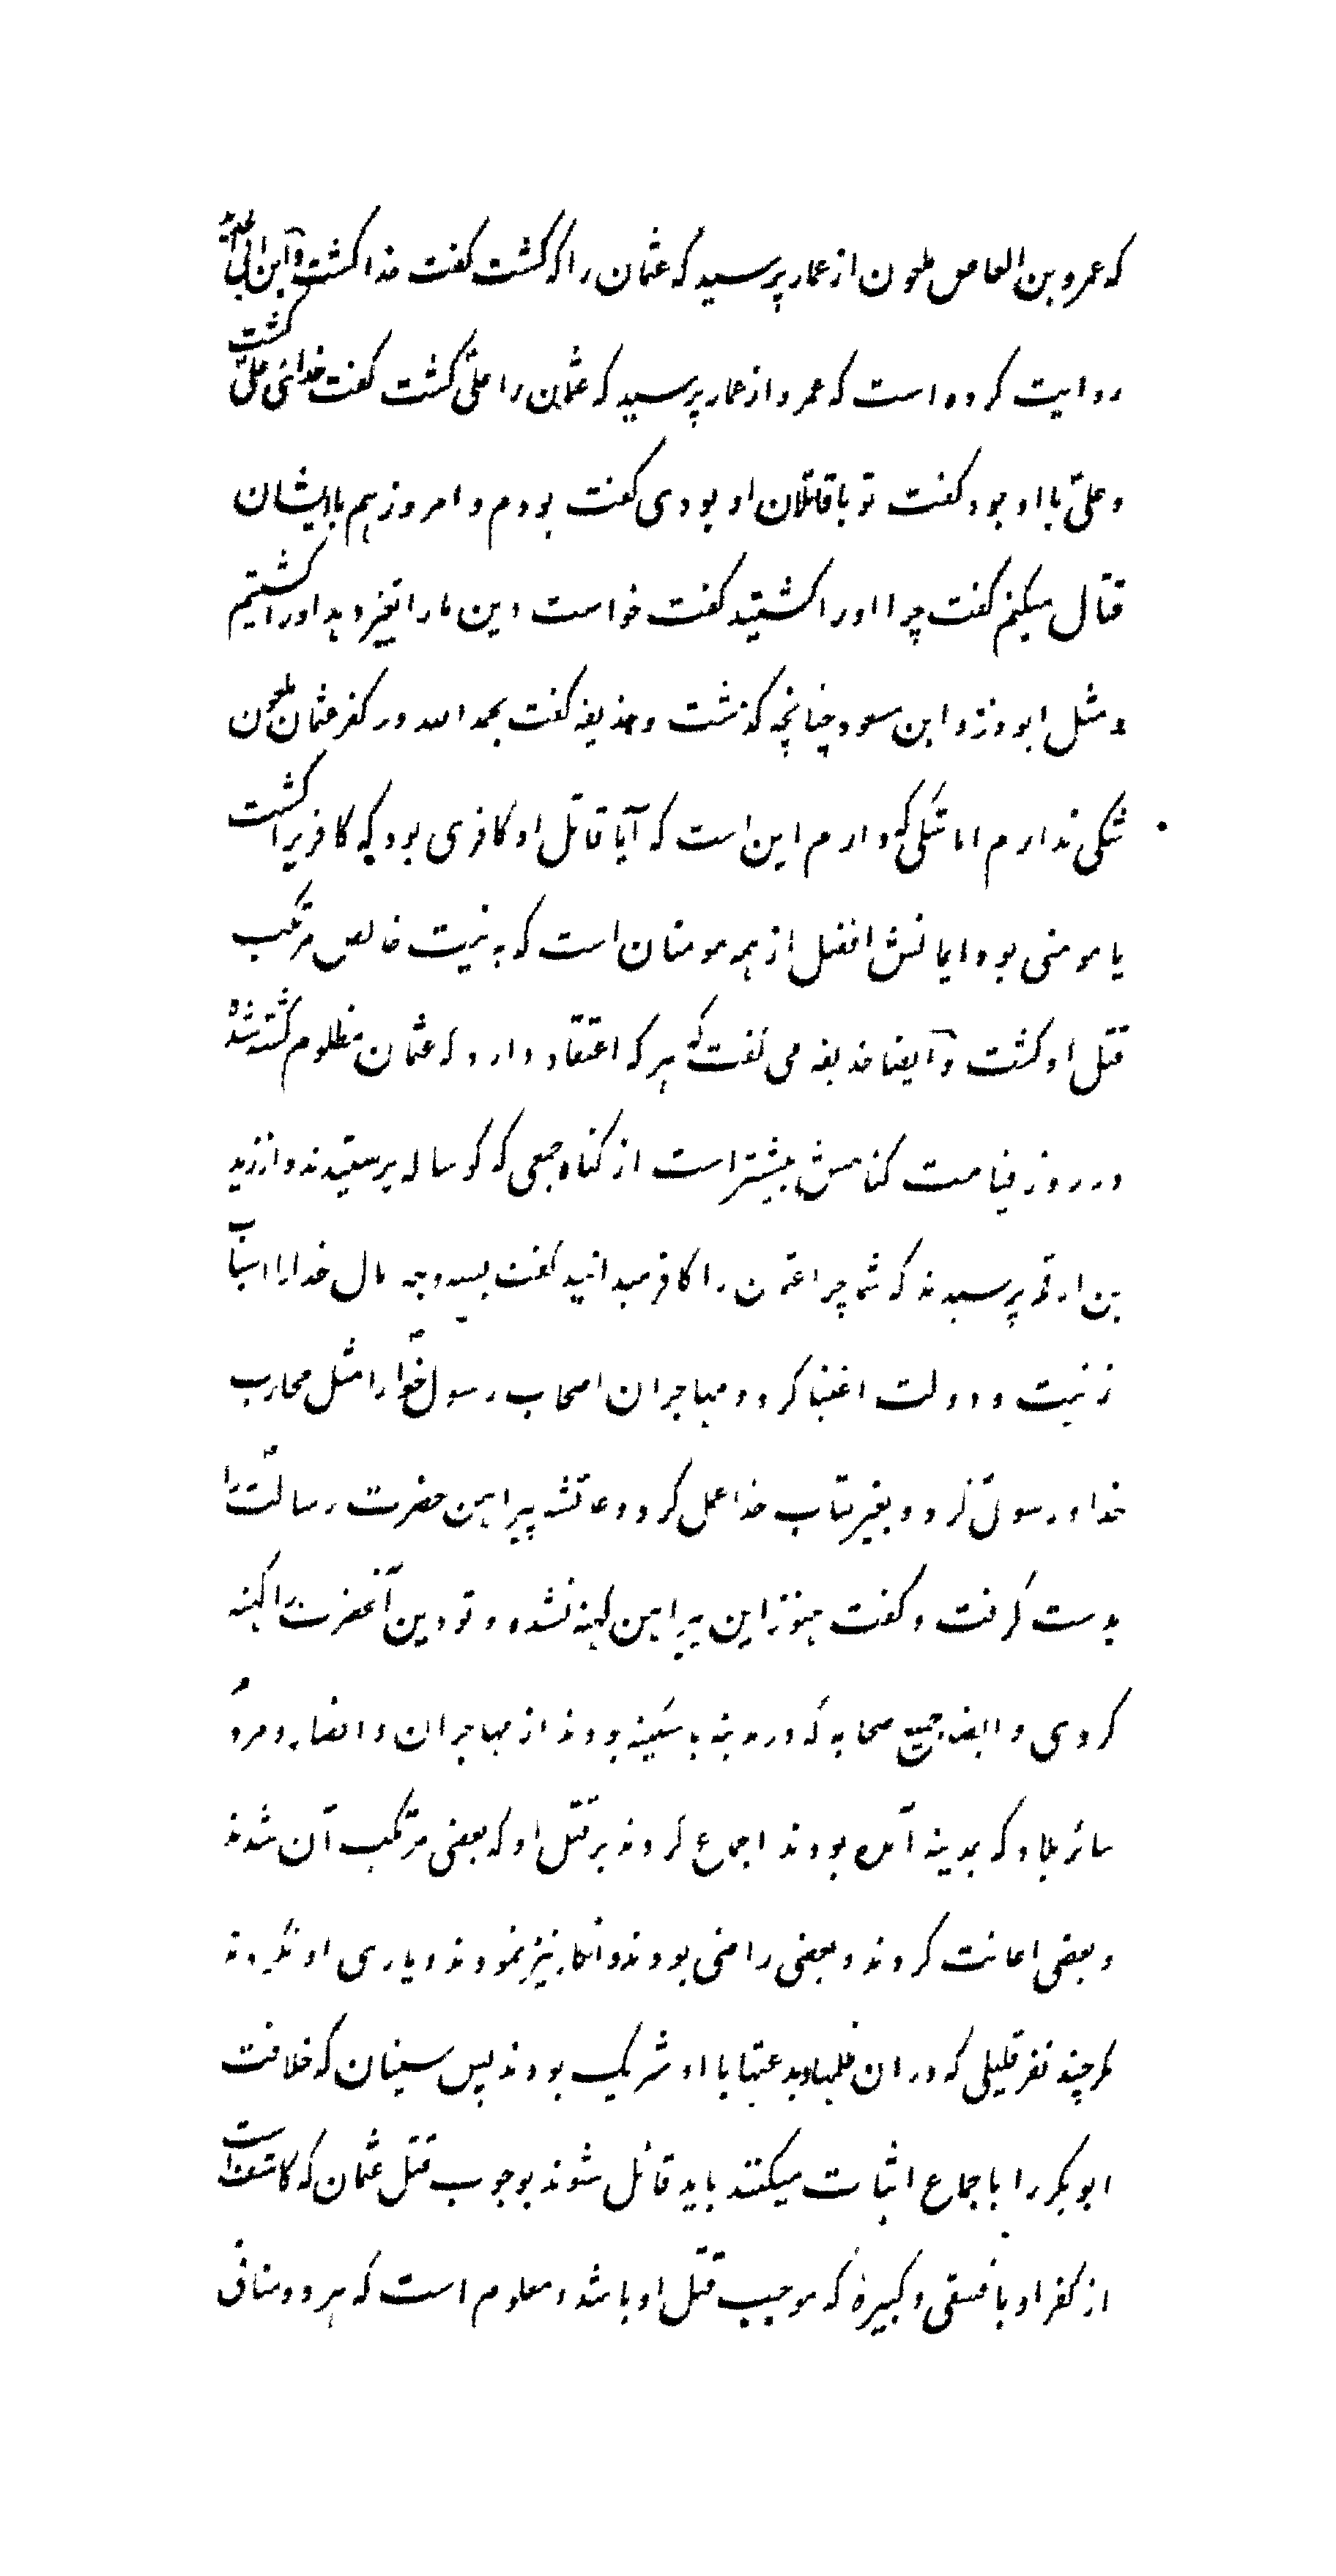 که عمرو بن العاص ملعون از عمار پرسید که عثمان را که کشت گفت خدا کشت و ابن ابی الحدید
روایت کرده است که عمرو از عمار پرسید که عثمان را علی کشت گفت خدای علی کشت
و علی با او بود گفت تو با قاتلان او بودی گفت بودم و امروز هم با ایشان
قتال میکنم گفت چرا او را کشتید گفت خواست دین ما را تغییر دهد او را کشتیم
و مثل ابوذر و ابن مسعود چنانچه گذشت و حذیفه گفت بحمد الله در کفر عثمان ملعون
شکی ندارم اما شکی که دارم این است که آیا قاتل او کافری بود که کافریرا کشت
یا مومنی بود ایمانش افضل از همه مومنان است که به نیت خالص مرتکب
قتل او گشت و ایضا حذیفه می گفت که هر که اعتقاد دارد که عثمان مظلوم کشته شده
در روز قیامت گناهش بیشتر است از گناه جمعی که گوساله پرستیدند و از زید
بن ارقم پرسیدند که شما چرا عثمان را کافر میدانید گفت بسه وجه مال خدا را اسباب
زینت و دولت اغنیا کرد و مهاجران اصحاب رسول خدا را مثل محارب
خدا و رسول کرد و بغیر کتاب خدا عمل کرد و عائشه پیراهن حضرت رسالت را
بدست گرفت و گفت هنوز این پیراهن کهنه نشده و تو دین آنحضرت را کهنه
کردی و ایضا جمیع صحابه که در مدینه با سکینه بودند از مهاجران و انصار و مردم
سائر بلاد که بمدینه آمده بودند اجماع کردند بر قتل او که بعضی مرتکب آن شدند
و بعضی اعانت کردند و بعضی راضی بودند و انکار نیز نمودند و یاری او نکردند
مگر چند نفر قلیلی که در ان ظلمها و بدعتها با او شریک بودند پس سنیان که خلافت
ابوبکر را باجماع اثبات میکنند باید قائل شوند بوجوب قتل عثمان که کاشف است
از کفر او یا فسقی و کبیرهٔ که موجب قتل او باشد و معلوم است که هر دو منافی